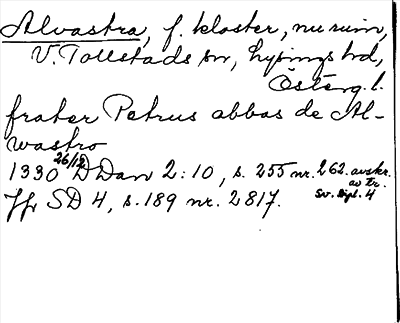 Alvastra, f. kloster, nu ruin,
V. Tollstads sn, Lysings hd,
Österg. l.
frater Petrus abbas de Al-
wastro
1330 26/12 DDan 2:10, s. 255 nr. 262. avskr.
av tr.
Sv. dipl. 4
Jfr SD 4, s. 189 nr. 2817.